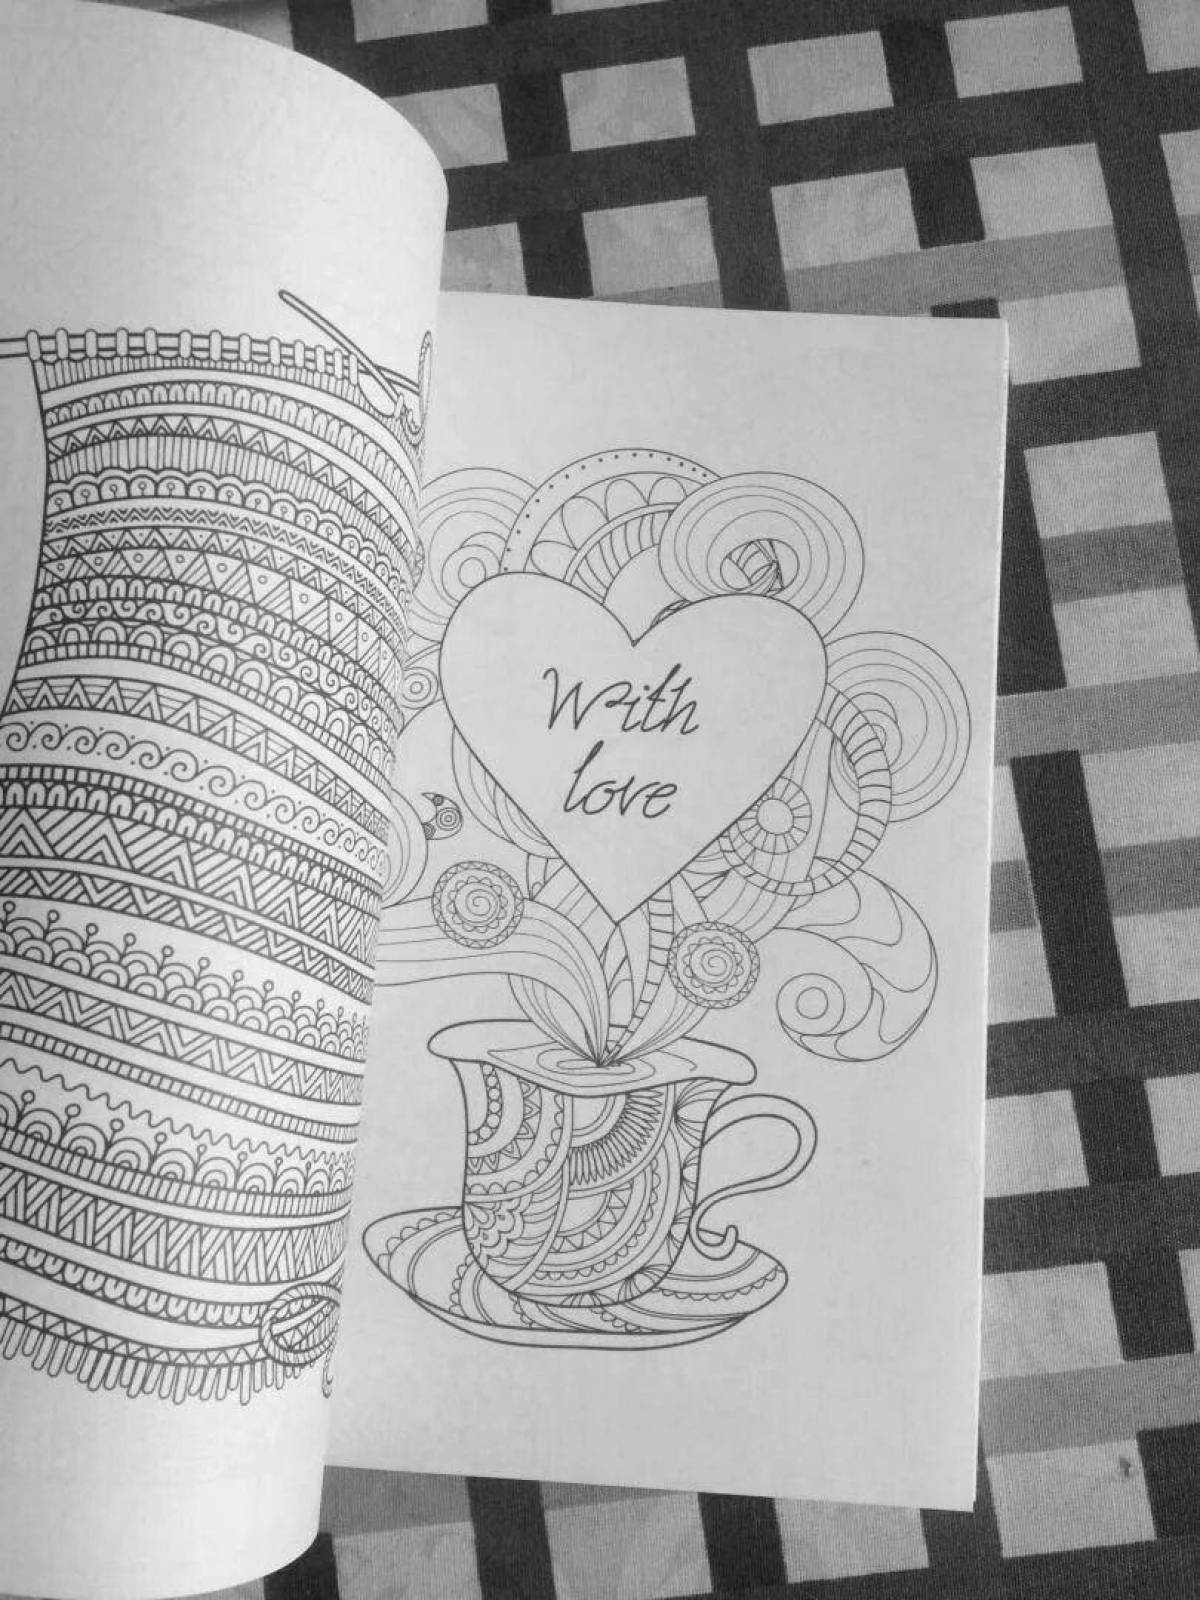 With
love